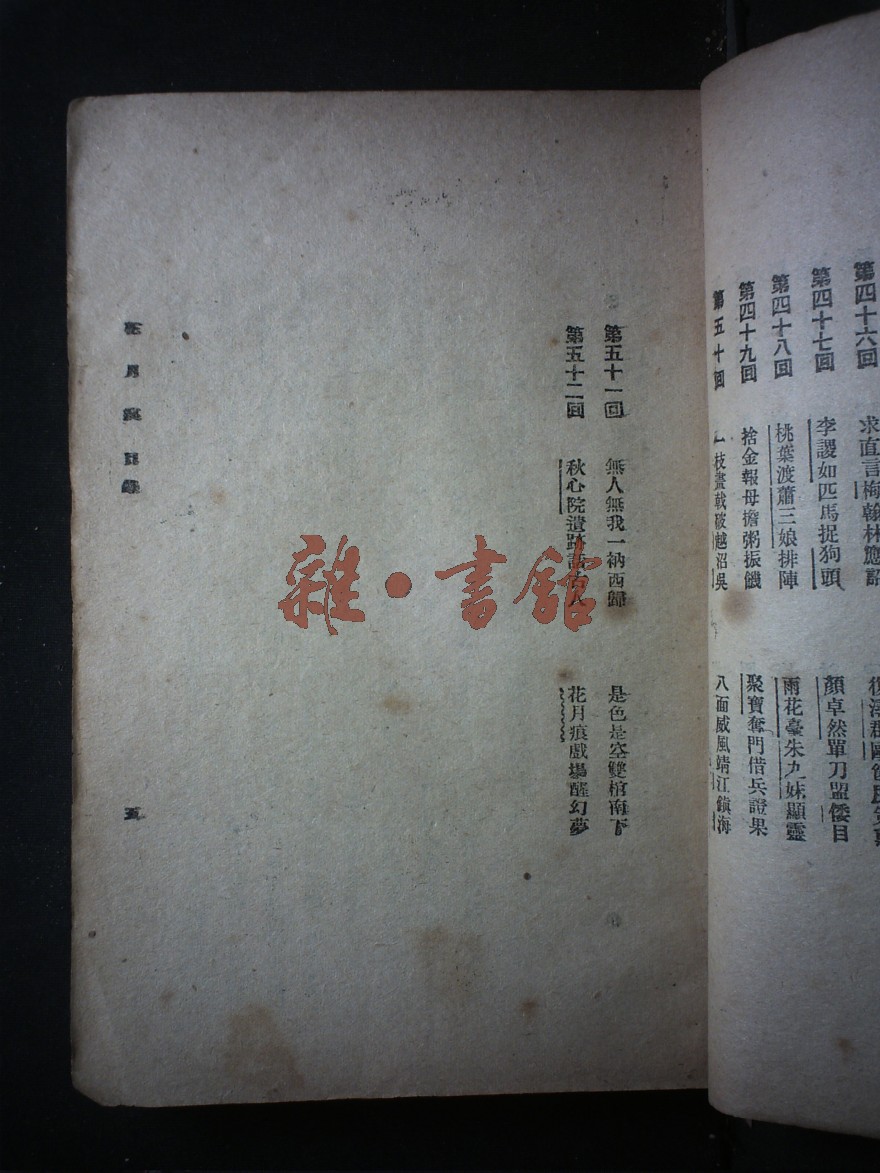 第四十六回 求直言梅翰林應詔
第四十七回 李謖如匹馬捉狗頭 顏卓然單刀盟倭目
第四十八回 桃葉渡蕭三娘排陣 雨花臺朱九妹顯靈
第四十九回 捨金報母擔粥振饑 聚寶奪門借兵證果
第五十回 一枝畫戟破越沼吳 八面威風靖江鎮海
第五十一回 無人無我一衲西歸 是色是空雙棺南下
第五十二回 秋心院遺跡話古人 花月痕戲場醒幻夢
花月痕 目錄
五
雜·書館